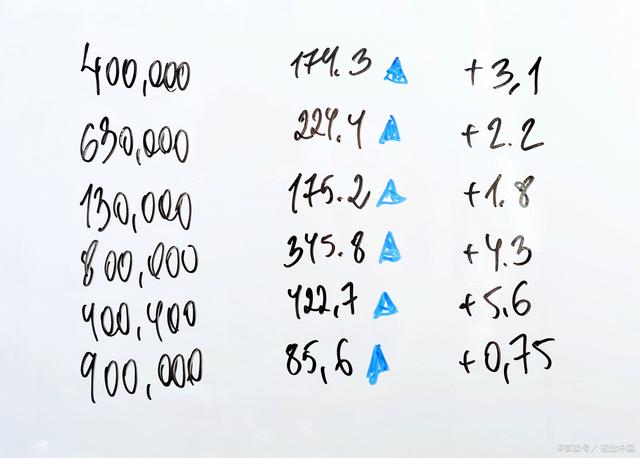 400,000 174.3 +3,1
630,000 224.4 +2.2
130,000 175.2 +1.8
800,000 345.8 +4.3
400,400 422,7 +5,6
900,000 85,6 +0,75
©百家号／视觉中国